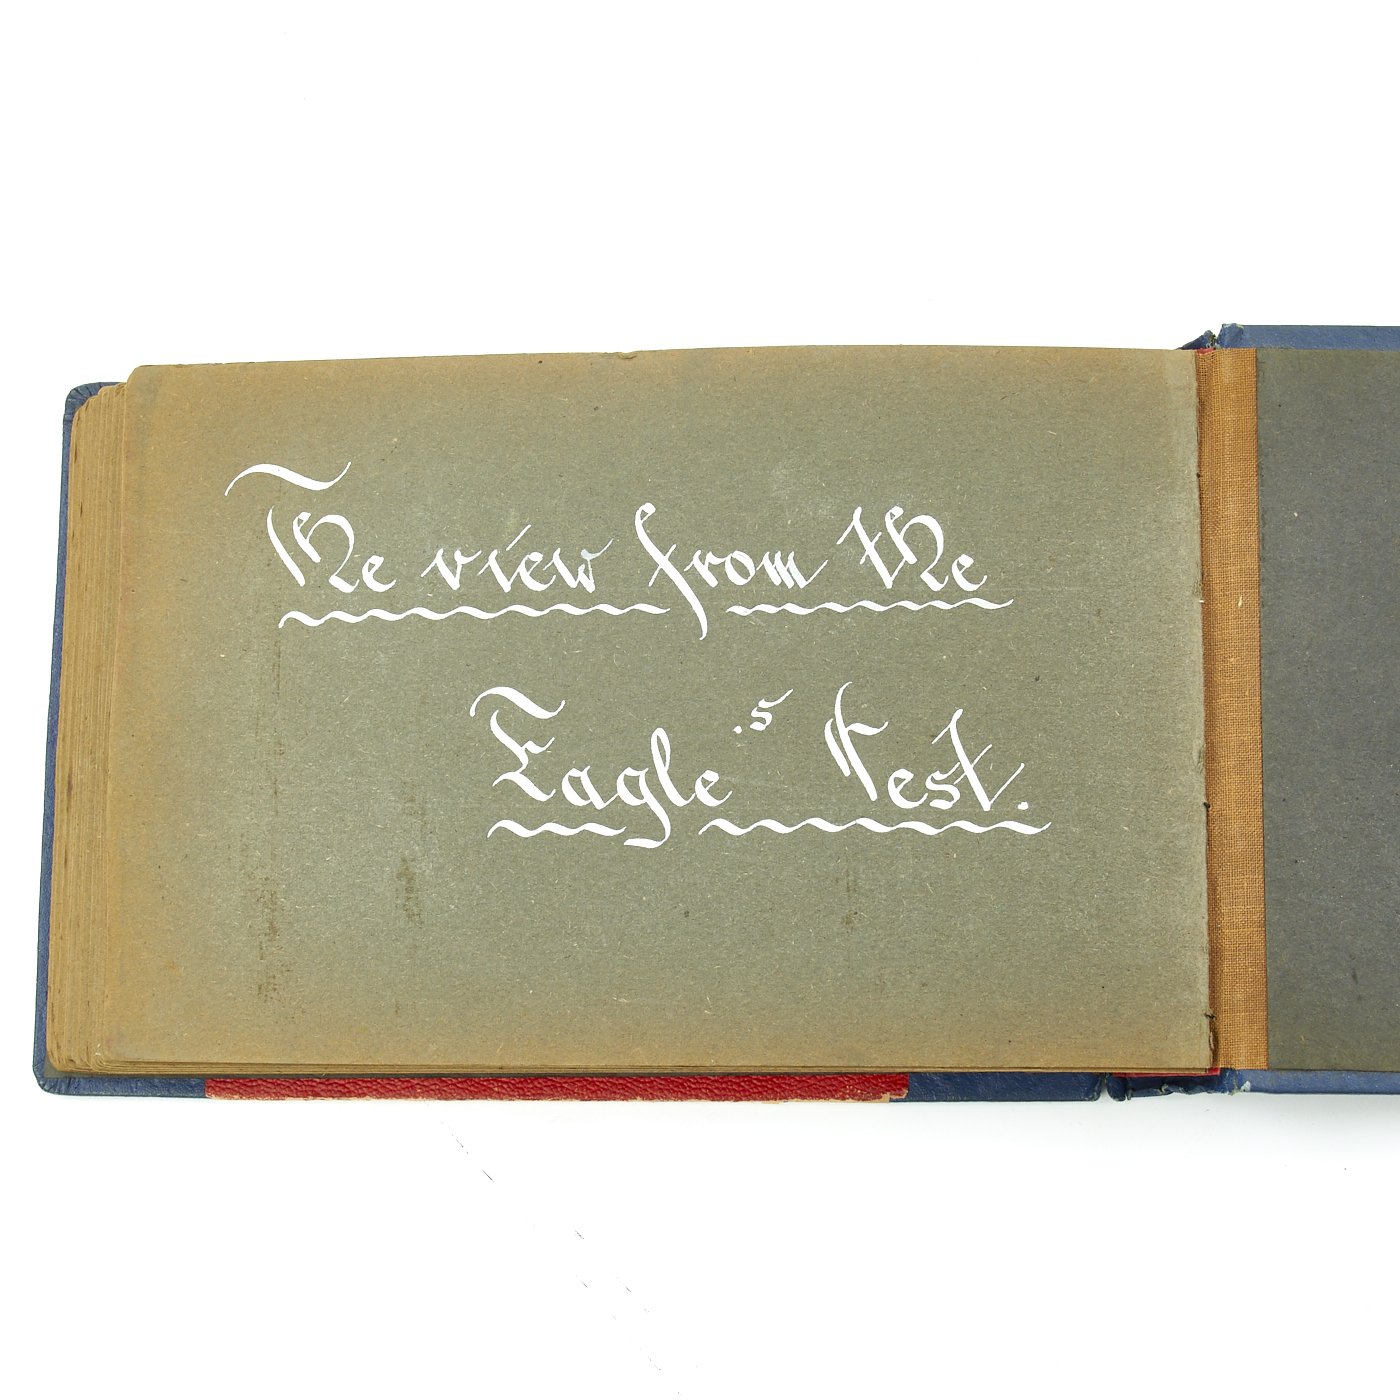 The view from the
Eagle's Nest.